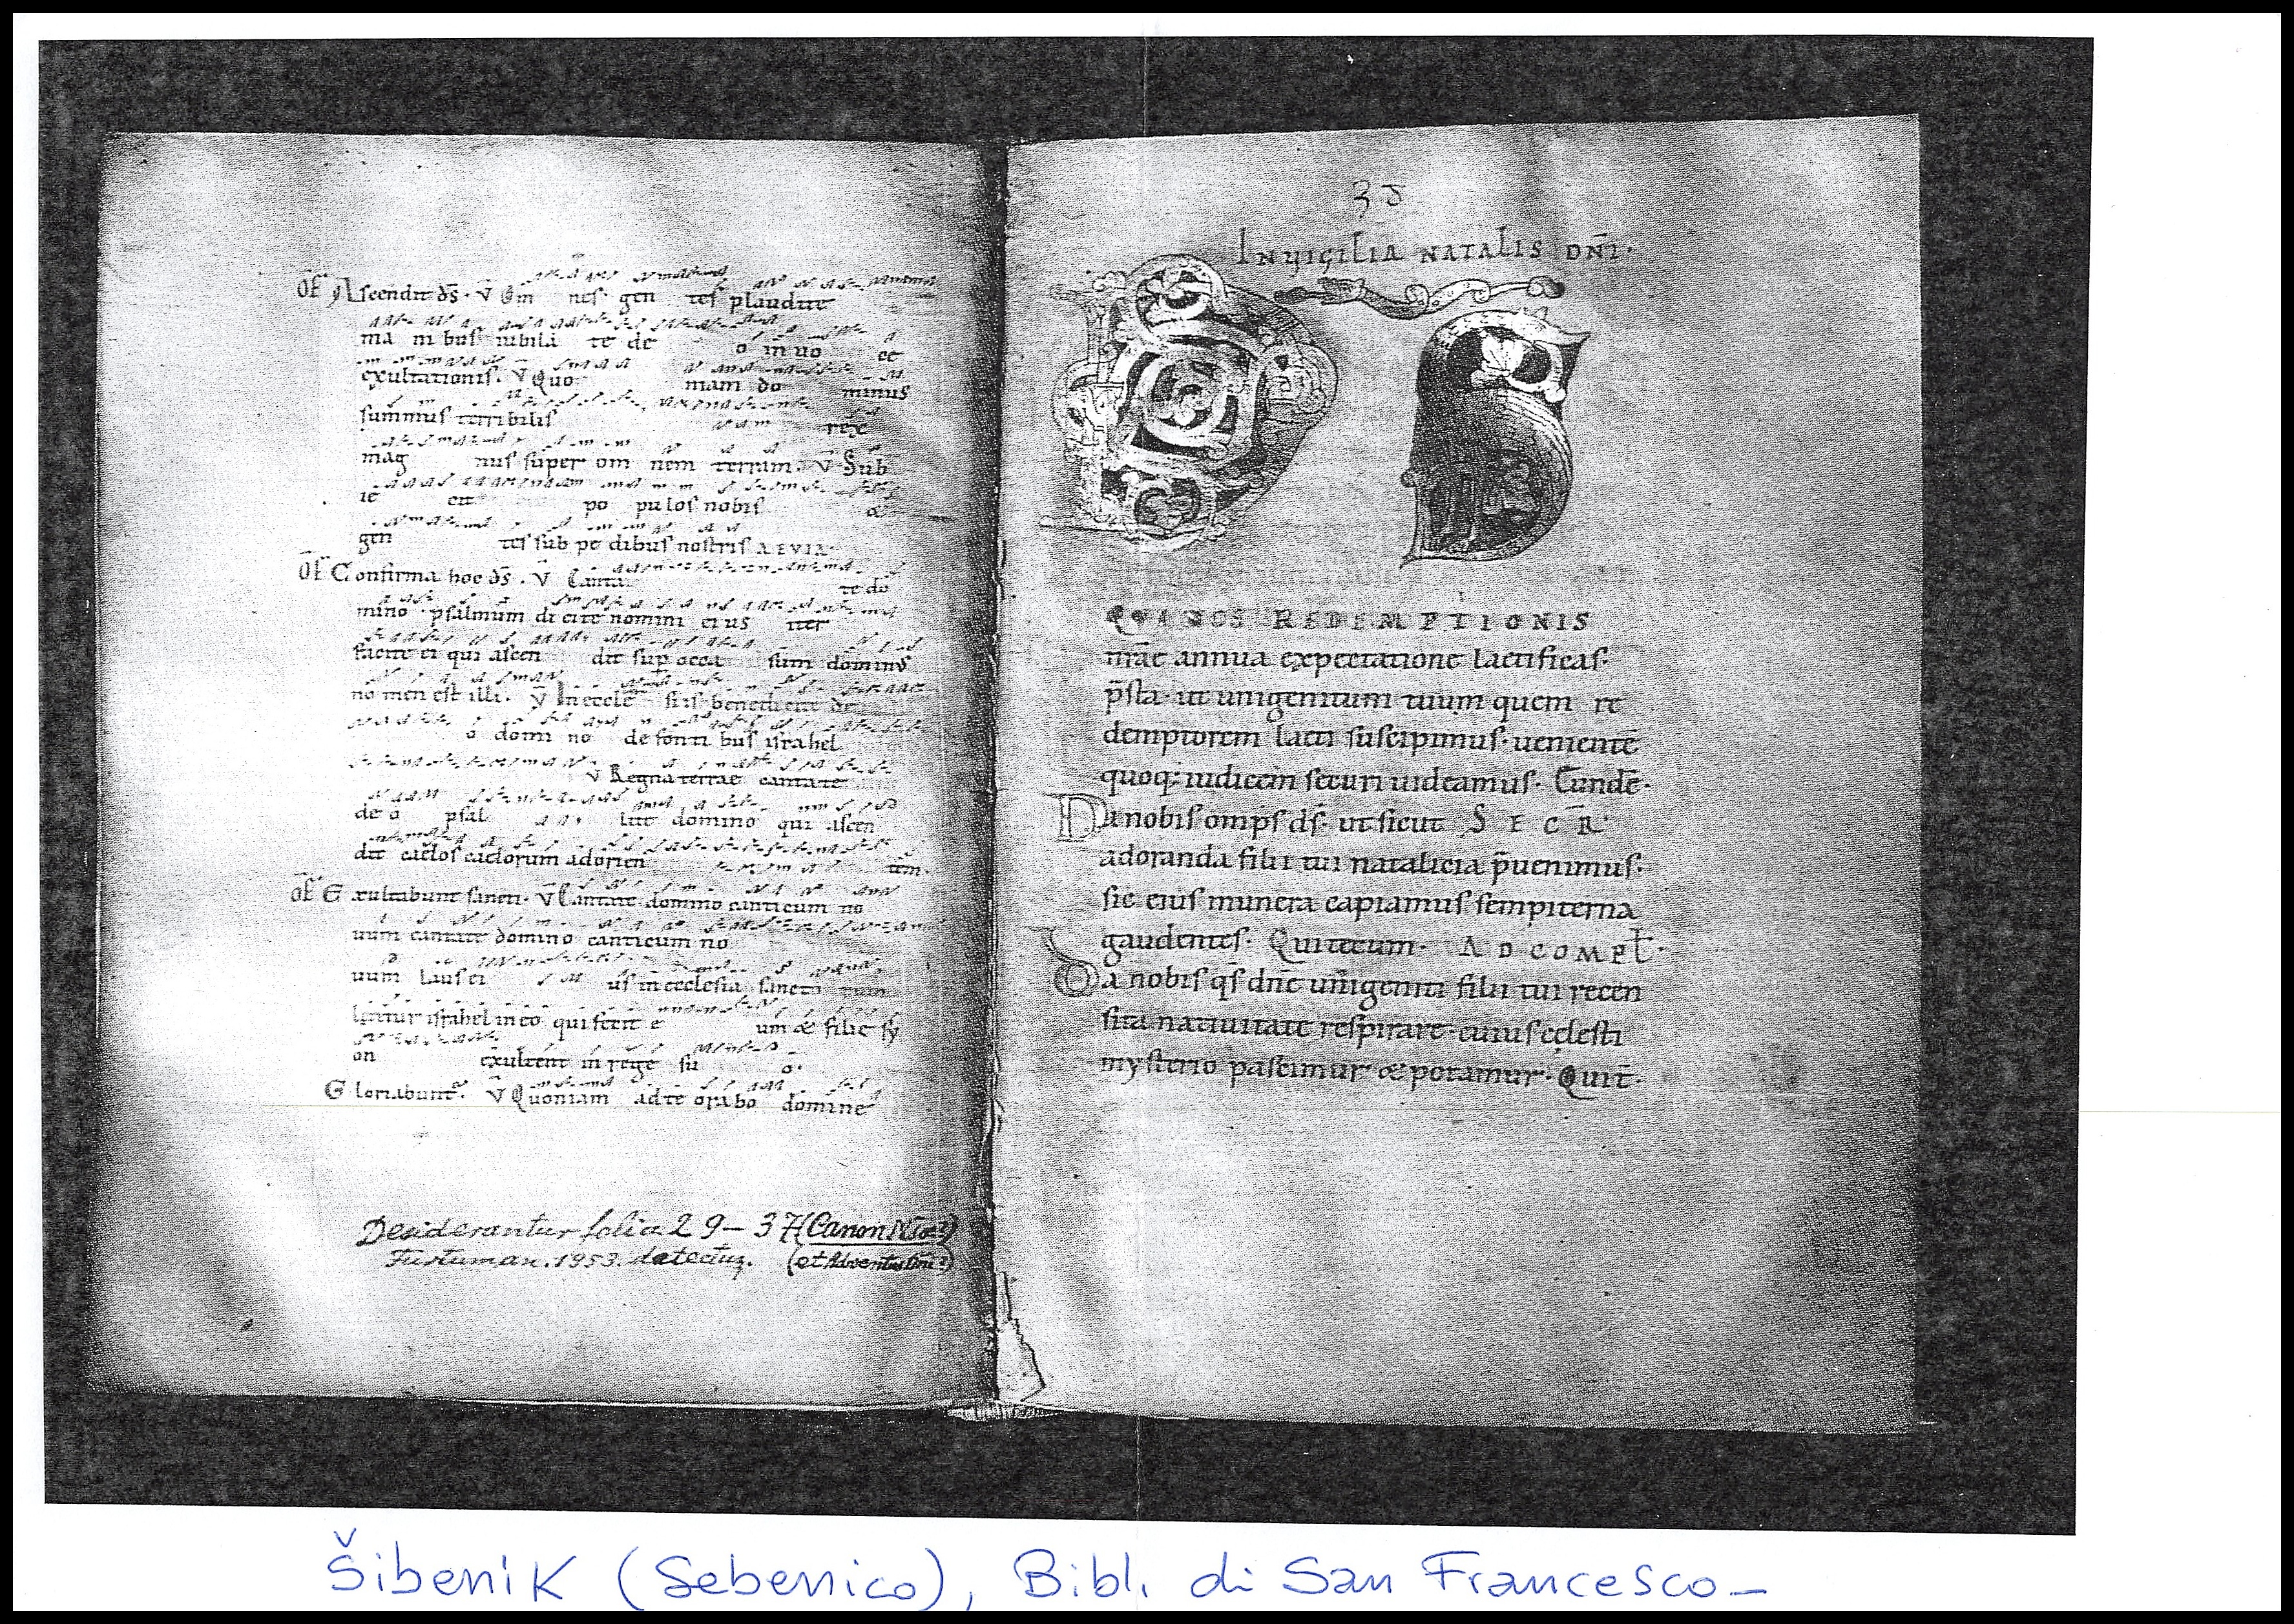 OF Ascendit ds̄. v̄ Om nes gen tes plaudite
ma ni bus iubila te de o in uo ce
exultationis. v̄ Quo niam do minus
summus terribilis rex
mag nus super om nem terram. v̄ Sub
ie cit po pulos nobis &
gen tes sub pe dibus nostris AEVIA.
OF Confirma hoc ds̄. v̄ Canta te do
mino psalmum dicite nomini eius iter
facite ei qui ascen dit sup occa sum dominus
no men est illi. v̄ In eccle siis benedicite de
o domi no de fonti bus israhel
v̄ Regna terrae cantate
de o psal lite domino qui ascen
dit caelos caelorum ad orien tem.
OF Exultabunt sancti. v̄ Cantate domino canticum no
uum cantate domino canticum no
uum laus ei us in ecclesia sancto rum
letetur israhel in eo qui fecit e um & filie sy
on exultent in rege su o.
Gloriabunt. v̄ Quoniam ad te orabo domine
Desiderantur folia 29–37 (Canon
1953. detectus. (et Adventus Dni?)
38
IN VIGILIA NATALIS DN̄I.
DS
QUI NOS REDEMPTIONIS
nrāe annua expectatione laetificas.
p̄sta. ut unigenitum tuum quem re
demptorem laeti suscipimus. uenientē
quoq; iudicem securi uideamus. Cundē.
Da nobis omps̄ ds̄. ut sicut SECR̄
adoranda filii tui natalicia p̄uenimus.
sic eius munera capiamus sempiterna
gaudentes. Qui tecum. AD COMPL̄.
Da nobis qs̄ dnē unigeniti filii tui recen
sita natiuitate respirare. cuius cęlesti
mysterio pascimur & potamur. Quit̄.
Šibenik (Sebenico), Bibl. di San Francesco–